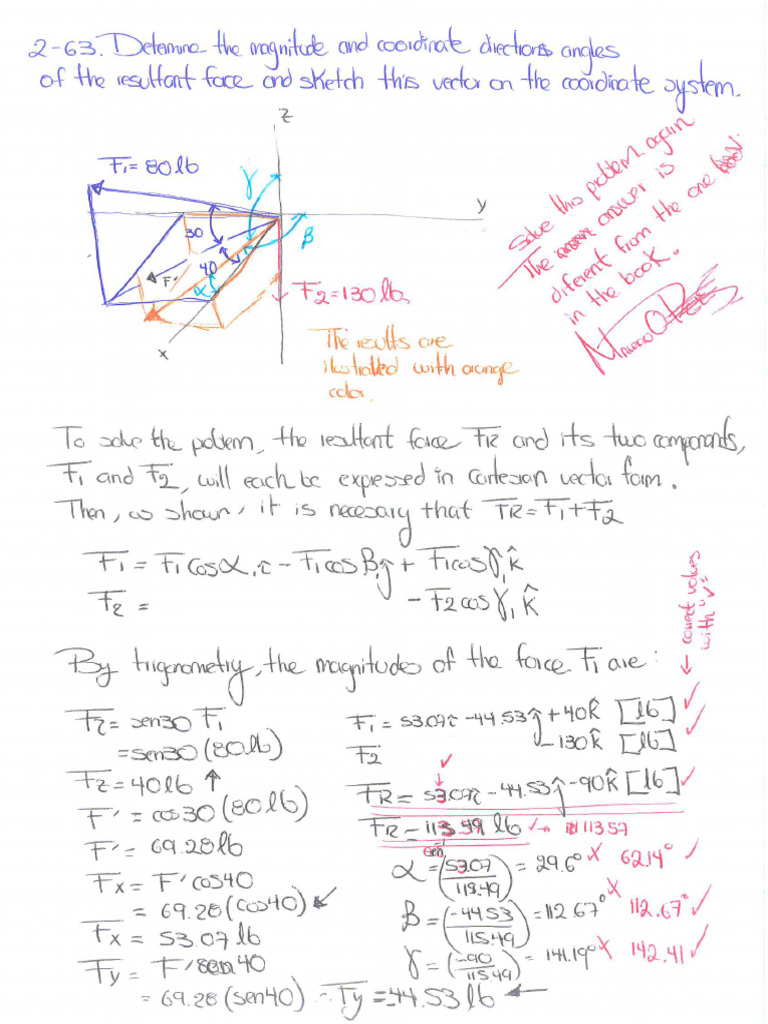 2-63. Determine the magnitude and coordinate directions angles
of the resultant force and sketch this vector on the coordinate system.
z
F1=80lb
γ
y
30
β
F'
40
α
F2=130lb
x
The results are
ilustratted with orange
color.
Solve this problem again
The answer is
diferent from the one
in the book.
To solve the poblem, the resultant force FR and its two components,
F1 and F2, will each be expressed in Cartesian vector form.
Then, as shown, it is necesary that FR=F1+F2
F1 = F1cosα1i - F1cosβ1j + F1cosγ1k̂
F2 = - F2cosγ1k̂
correct values
with "✓"
By trigonometry, the magnitudes of the force F1 are:
Fz = sen30 F1
= sen30(80lb)
Fz = 40lb ↑
F' = cos30(80lb)
F' = 69.28lb
Fx = F'cos40
= 69.28(cos40) ↙
Fx = 53.07lb
Fy = F'sen40
= 69.28(sen40) ∴ Fy = -44.53 lb ←
F1 = 53.07i - 44.53j + 40k̂ [lb] ✓
F2 -130k̂ [lb] ✓
FR = 53.07i - 44.53j - 90k̂ [lb] ✓
FR = lb ✓ → 113.57
α = (53.07/115.49) = 29.6° x 62.14° ✓
β = (-44.53/115.49) = 112.67° x 112.67° ✓
γ = (-90/115.49) = 141.19° x 142.41 ✓